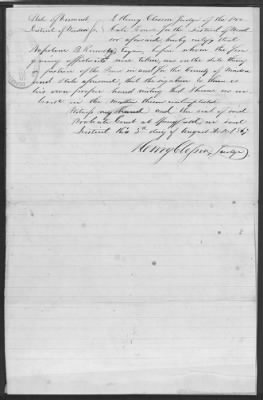 State of Vermont } I Henry Closson Judge of the Pro-
District of Windsor ss. } bate Court for the District of Wind-
sor aforesaid, hereby certify that
B. Esquire, before whom the fore
going affidavits were taken, was on the date thereof
a justice of the Peace in and for the County of Windsor
and State aforesaid, that the signature is
his own proper hand writing that I have no in-
terest in the matter therein
Witness my hand and the seal of said
Probate Court at Springfield, in said
District this 5th day of August A.D.
Henry Closson, Judge